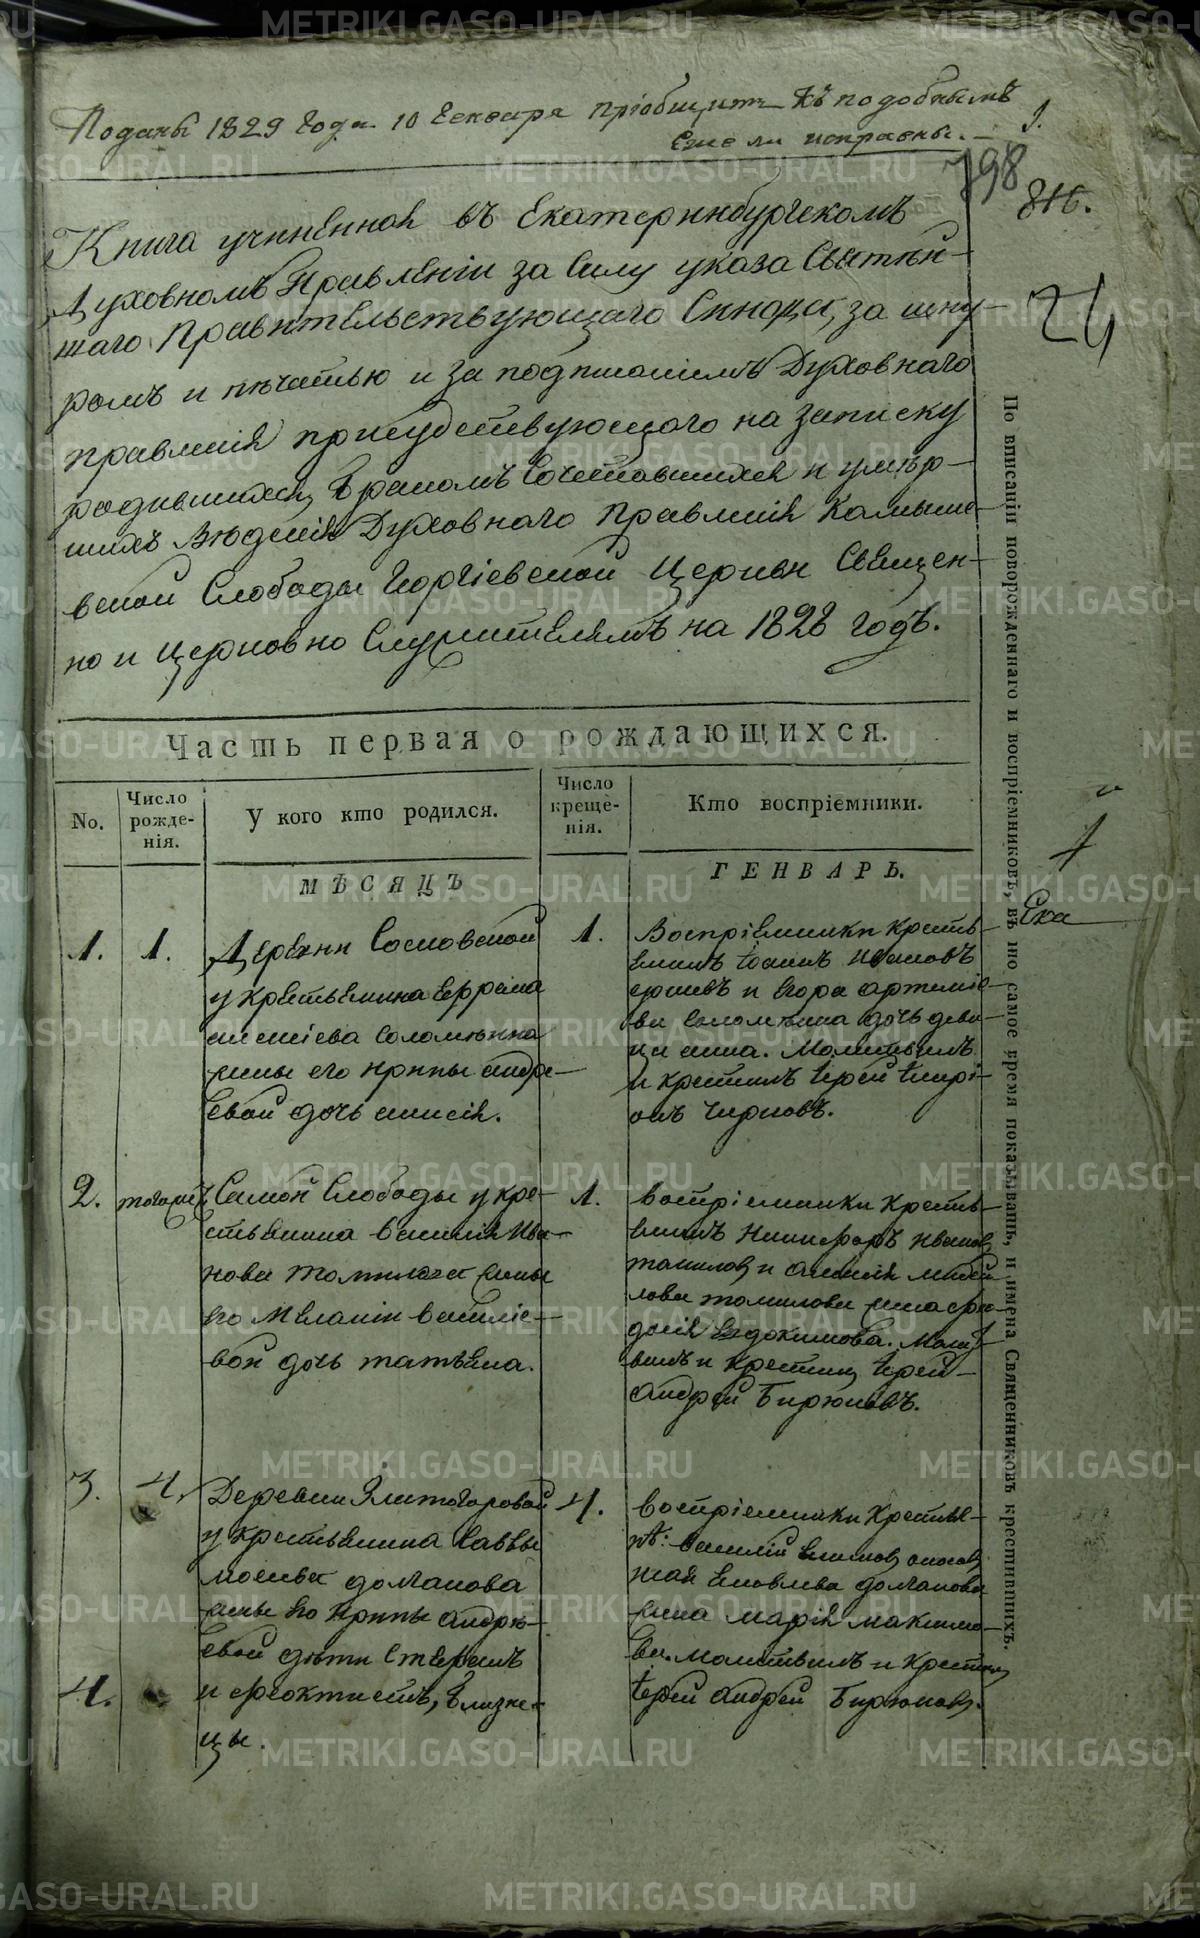 Поданы 1829 года 10 генваря пріобщить къ подобнымъ
ежели исправны.
1.
798
816.
24
Книга учиненная въ Екатеринбургскомъ
Духовномъ Правленіи за силу указа Святѣй-
шаго Правительствующаго Синода, за шну-
ромъ и печатью и за подписаніемъ Духовнаго
правленія присудствующаго на записку
родившихся, бракомъ сочетавшихся и умер-
шихъ вѣденія Духовнаго Правленія Камыше-
вской Слободы Георгіевской церкви Священ-
но и церковно служителямъ на 1828 годъ.
Часть первая о рождающихся.
No.
Число рожде-нія.
У кого кто родился.
Число крещѐ-нія.
Кто воспріемники.
МѢСЯЦЪ
ГЕНВАРЬ.
1.
1.
Деревни Сосновской
у крестьянина Ефрема
Соломеина
жены его Ирины Андре-
евой дочь
1.
Воспріемники крестья-
нинъ Іоаннъ Ивановъ
и Егора Артеміе-
ва Соломеина дочь деви-
ца анна. Молитвилъ
и крестилъ Іерей
Чирковъ.
2.
тогожъ
Самой Слободы у кре-
стьянина Василія Ива-
нова Томилова жены
его Меланіи Василіе-
вой дочь татьяна.
1.
воспріемники крестья-
нинъ Никифоръ Иванов
томилов, и
томилова жена
Евдокимова. Молит-
вилъ и крестилъ Іерей
Андрей Бирюковъ.
3.
4.
Деревни Златогоровой
у крестьянина Саввы
долганова
жены его Ирины Андре-
евой дѣти Стефанъ
4.
и феоктистъ, близне-
цы.
4.
воспріемники крестья-
Василій
Яковлева долганова
жена марія максимо-
ва. молитвилъ и крестил
Іерей Андрей Бирюков.
По вписаніи новорожденнаго и воспріемниковъ, въ то самое время показывать, и имена Священниковъ крестившихъ.